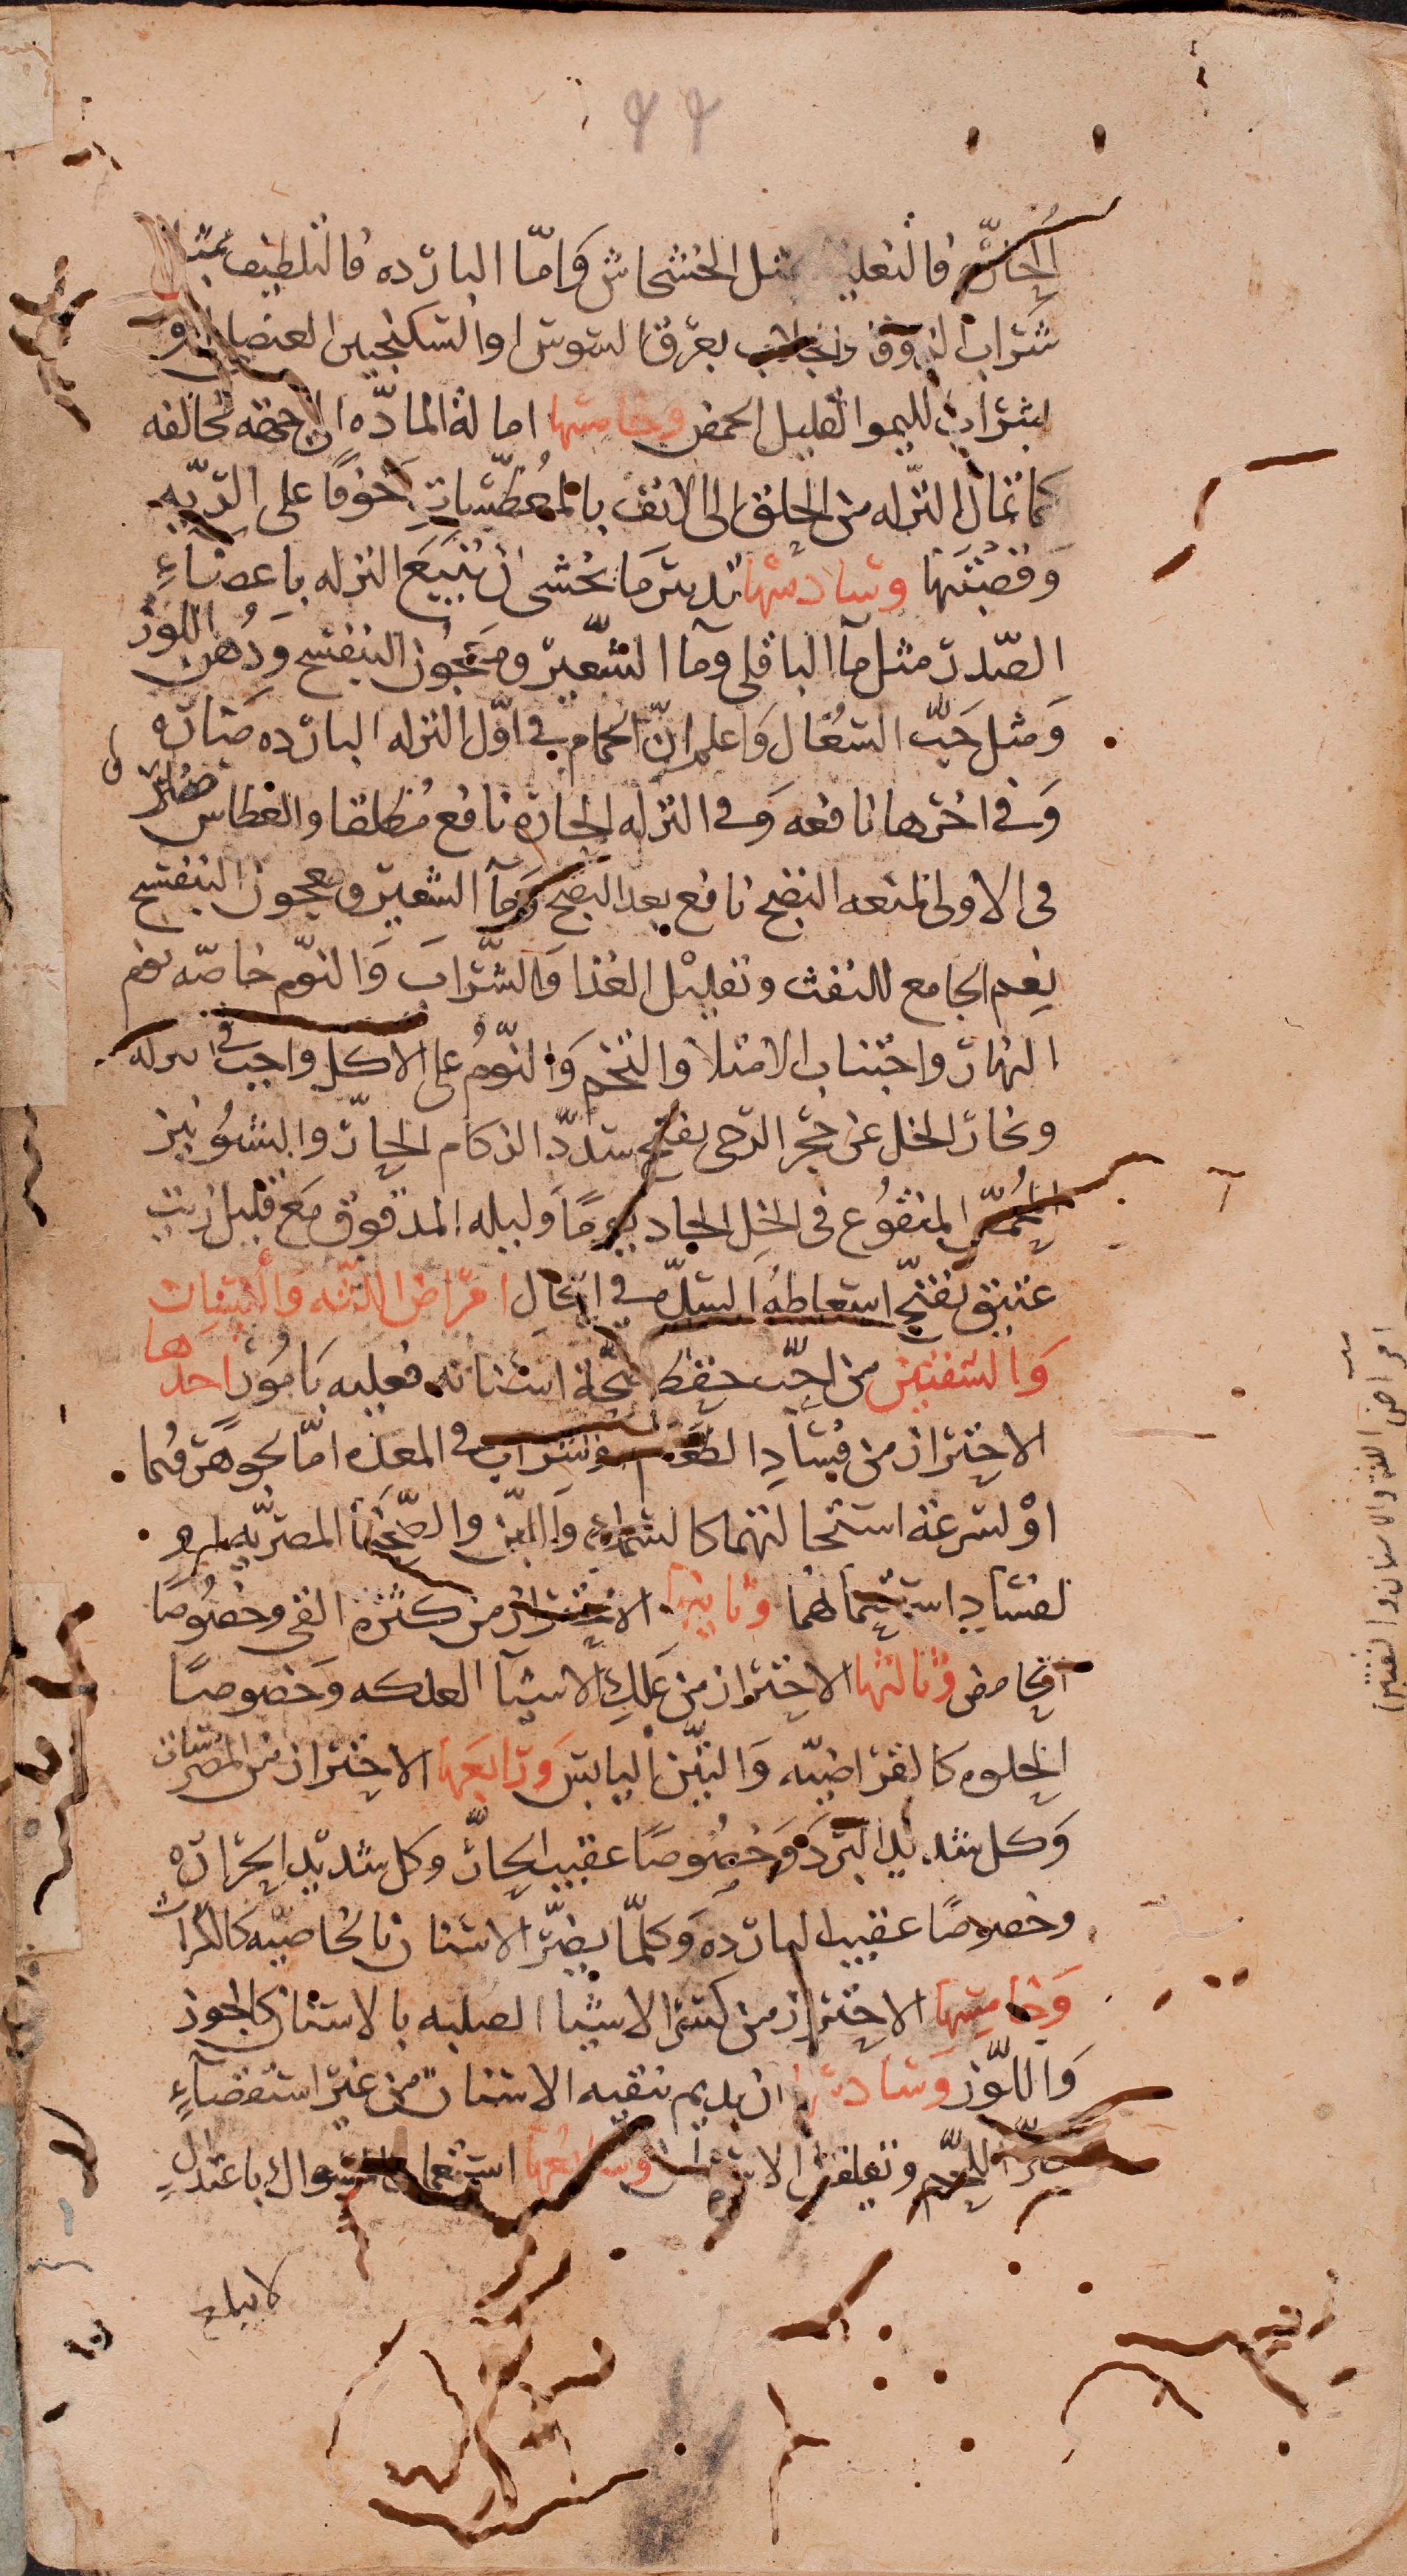 ٤٤
الحارة فالتغليظ بمثل الخشخاش وَامّا الباردة فالتلطيف بمثل
شراب الزوفا والجلاب بعرق السوس او السكنجبين العنصلي او
بشراب الليمو القليل الحمض وخامسها امالة المادّه الى جهة تخالفه
كما تمال النزله من الحلق الى الانف بالمُعَطِّسَاتِ خوفًا على الريّه
وَقصَبَتها وسادسها تدبير مَا يخشى ان يتبعَ النزله باعضاءِ
الصّدر مثل مآ الباقلى ومآ الشّعير ومعجُون البنفسج وَدُهن اللوز
وَمثل حَبّ السُعَال وَاعلم انّ الحمام في اوّل النزله البارده ضارّه
وَفي اخرها نافعه وَفي النزله الحارة نافع مُطلقا والعطاس ضارّ
فى الاولى لمنعه النضج نافع بعد النضج وَمآ الشعير ومعجون البنفسج
نِعم الجامع للنفث وتقليْل الغذا وَالشّرابَ وَالنوّم خاصّه نوم
النهار واجتناب الامتلا والتخم وَالنوّمُ على الاكل واجب في النزله
وبخار الخل عن حجر الرحى يفتح سدد الزكام الحارّ والشوُنيز
المُحَمّص المنقُوع فى الخل الحاد يومًا وليله المدقوق مَع قليل زيت
عتيق يفتح استعاطهُ السدّه في الحال امراض اللثّه وَالأسنان
وَالشفتين من احبّ حفظ صحّة اسنانه فعليه بَامُور احدها
الاحتراز من فسَادِ الطعَام والشراب في المعده امّا لجوهرهما
اوْ لسرعة استحالتهما كالسّمك وَاللبن والصِّحَنا المصريّه او
لفسَادِ استعمالهما وثانيها الاحتراز من كثرة القي وخصُوصًا
الحامض وَثالثها الاحتراز من عَلكِ الاشيآ العلكه وَخصوصًا
الحلوه كالقراضيّه وَالتّين اليابس وَرَابعَها الاحتراز من المضرسات
وَكل شديد البَرد وَخصُوصًا عقيب الحارّ وكل شديد الحرارَه
وخصوصًا عقيب البارده وَكلّما يضرّ الاسنان بالخاصيّه كالكراث
وَخامسها الاحتراز من كسر الاشيا الصلبه بالاسنان كالجوز
وَاللّوز وسَادسها ان يديم تنقيه الاسنان من غير استقصآءٍ
يضرّ اللحم وتقلقل الاسنان وسَابعُها استعمال السّواك باعتدالٍ
لا يبلغ
امراض اللثة والاسنان والشفتين